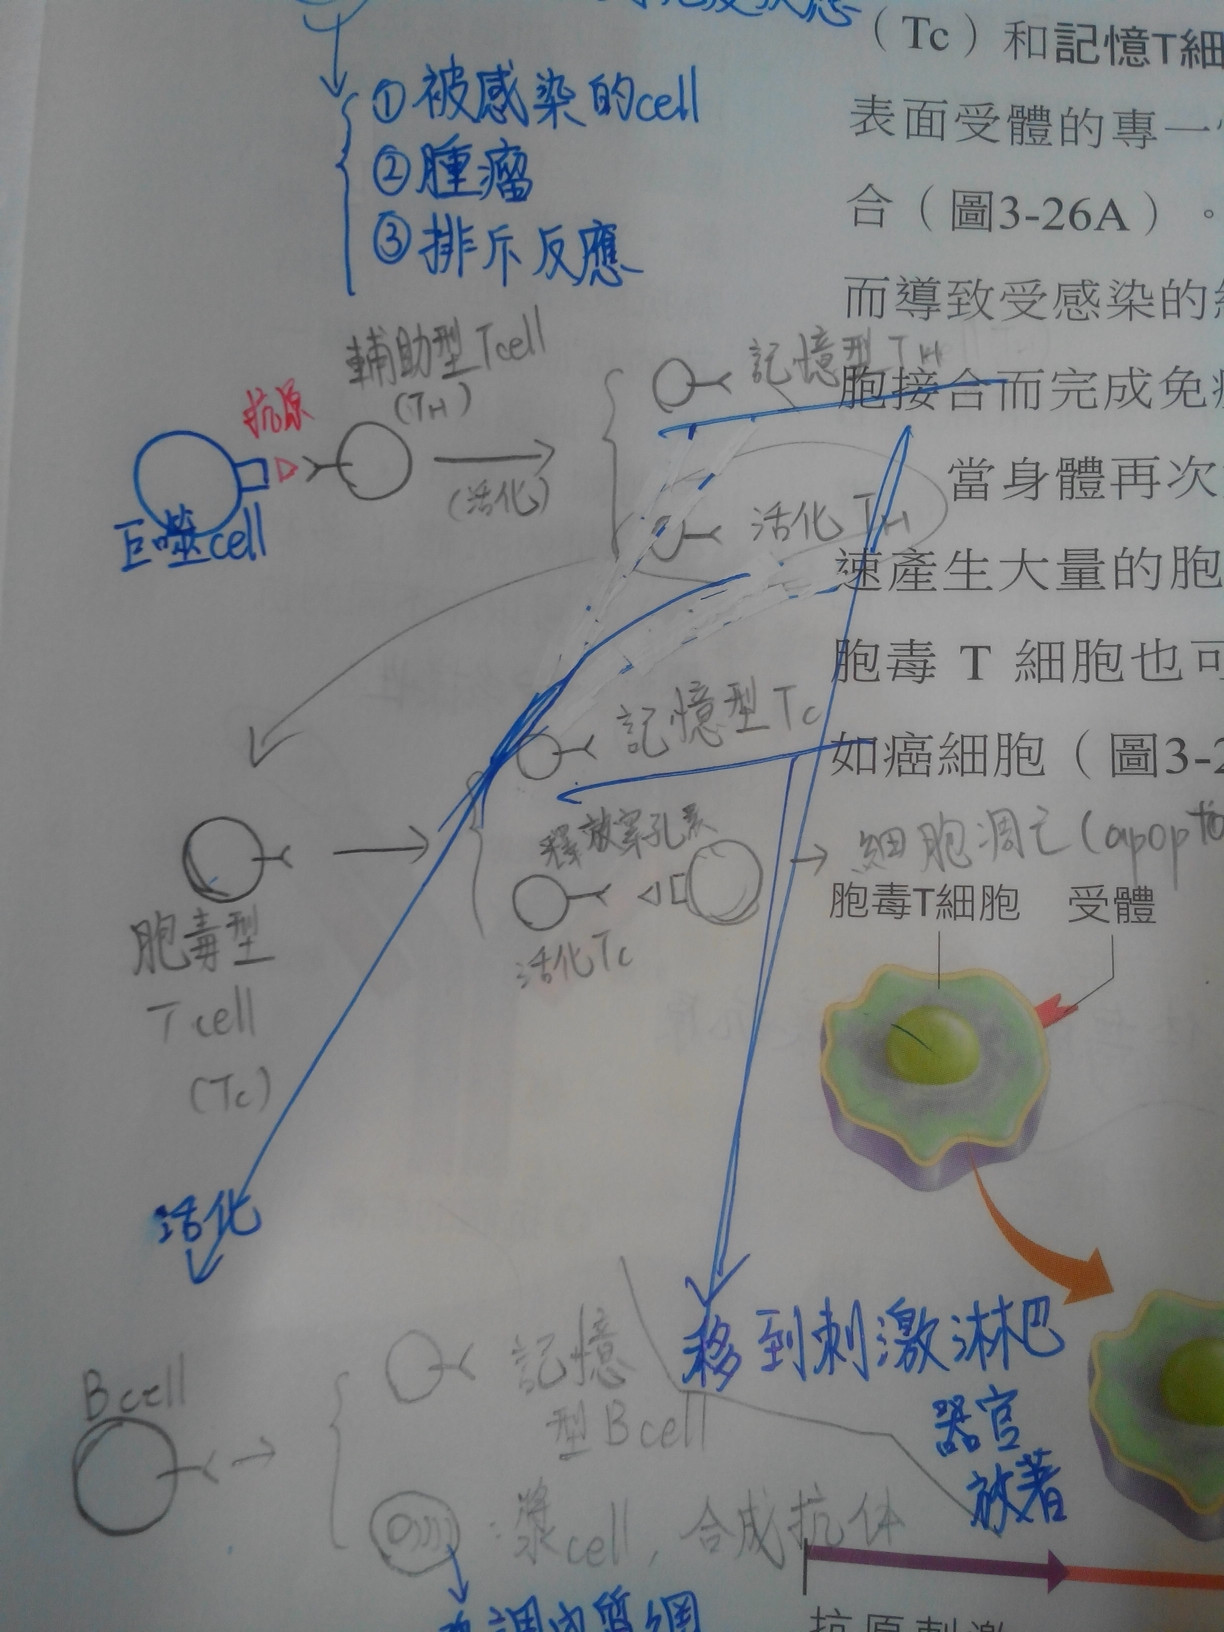 ①被感染的cell
②腫瘤
③排斥反應
（Tc）和記憶T細
表面受體的專一
合（圖3-26A）。
而導致受感染的
胞接合而完成免
當身體再次
速產生大量的胞
胞毒 T 細胞也可
如癌細胞（圖3-2
輔助型Tcell
(TH)
抗原
巨噬cell
(活化)
記憶型TH
活化TH
記憶型Tc
釋放穿孔素
細胞凋亡(apopto
活化Tc
胞毒型
Tcell
(Tc)
胞毒T細胞
受體
活化
移到刺激淋巴
器官
放著
Bcell
記憶
型Bcell
漿cell，合成抗体
抗原刺激